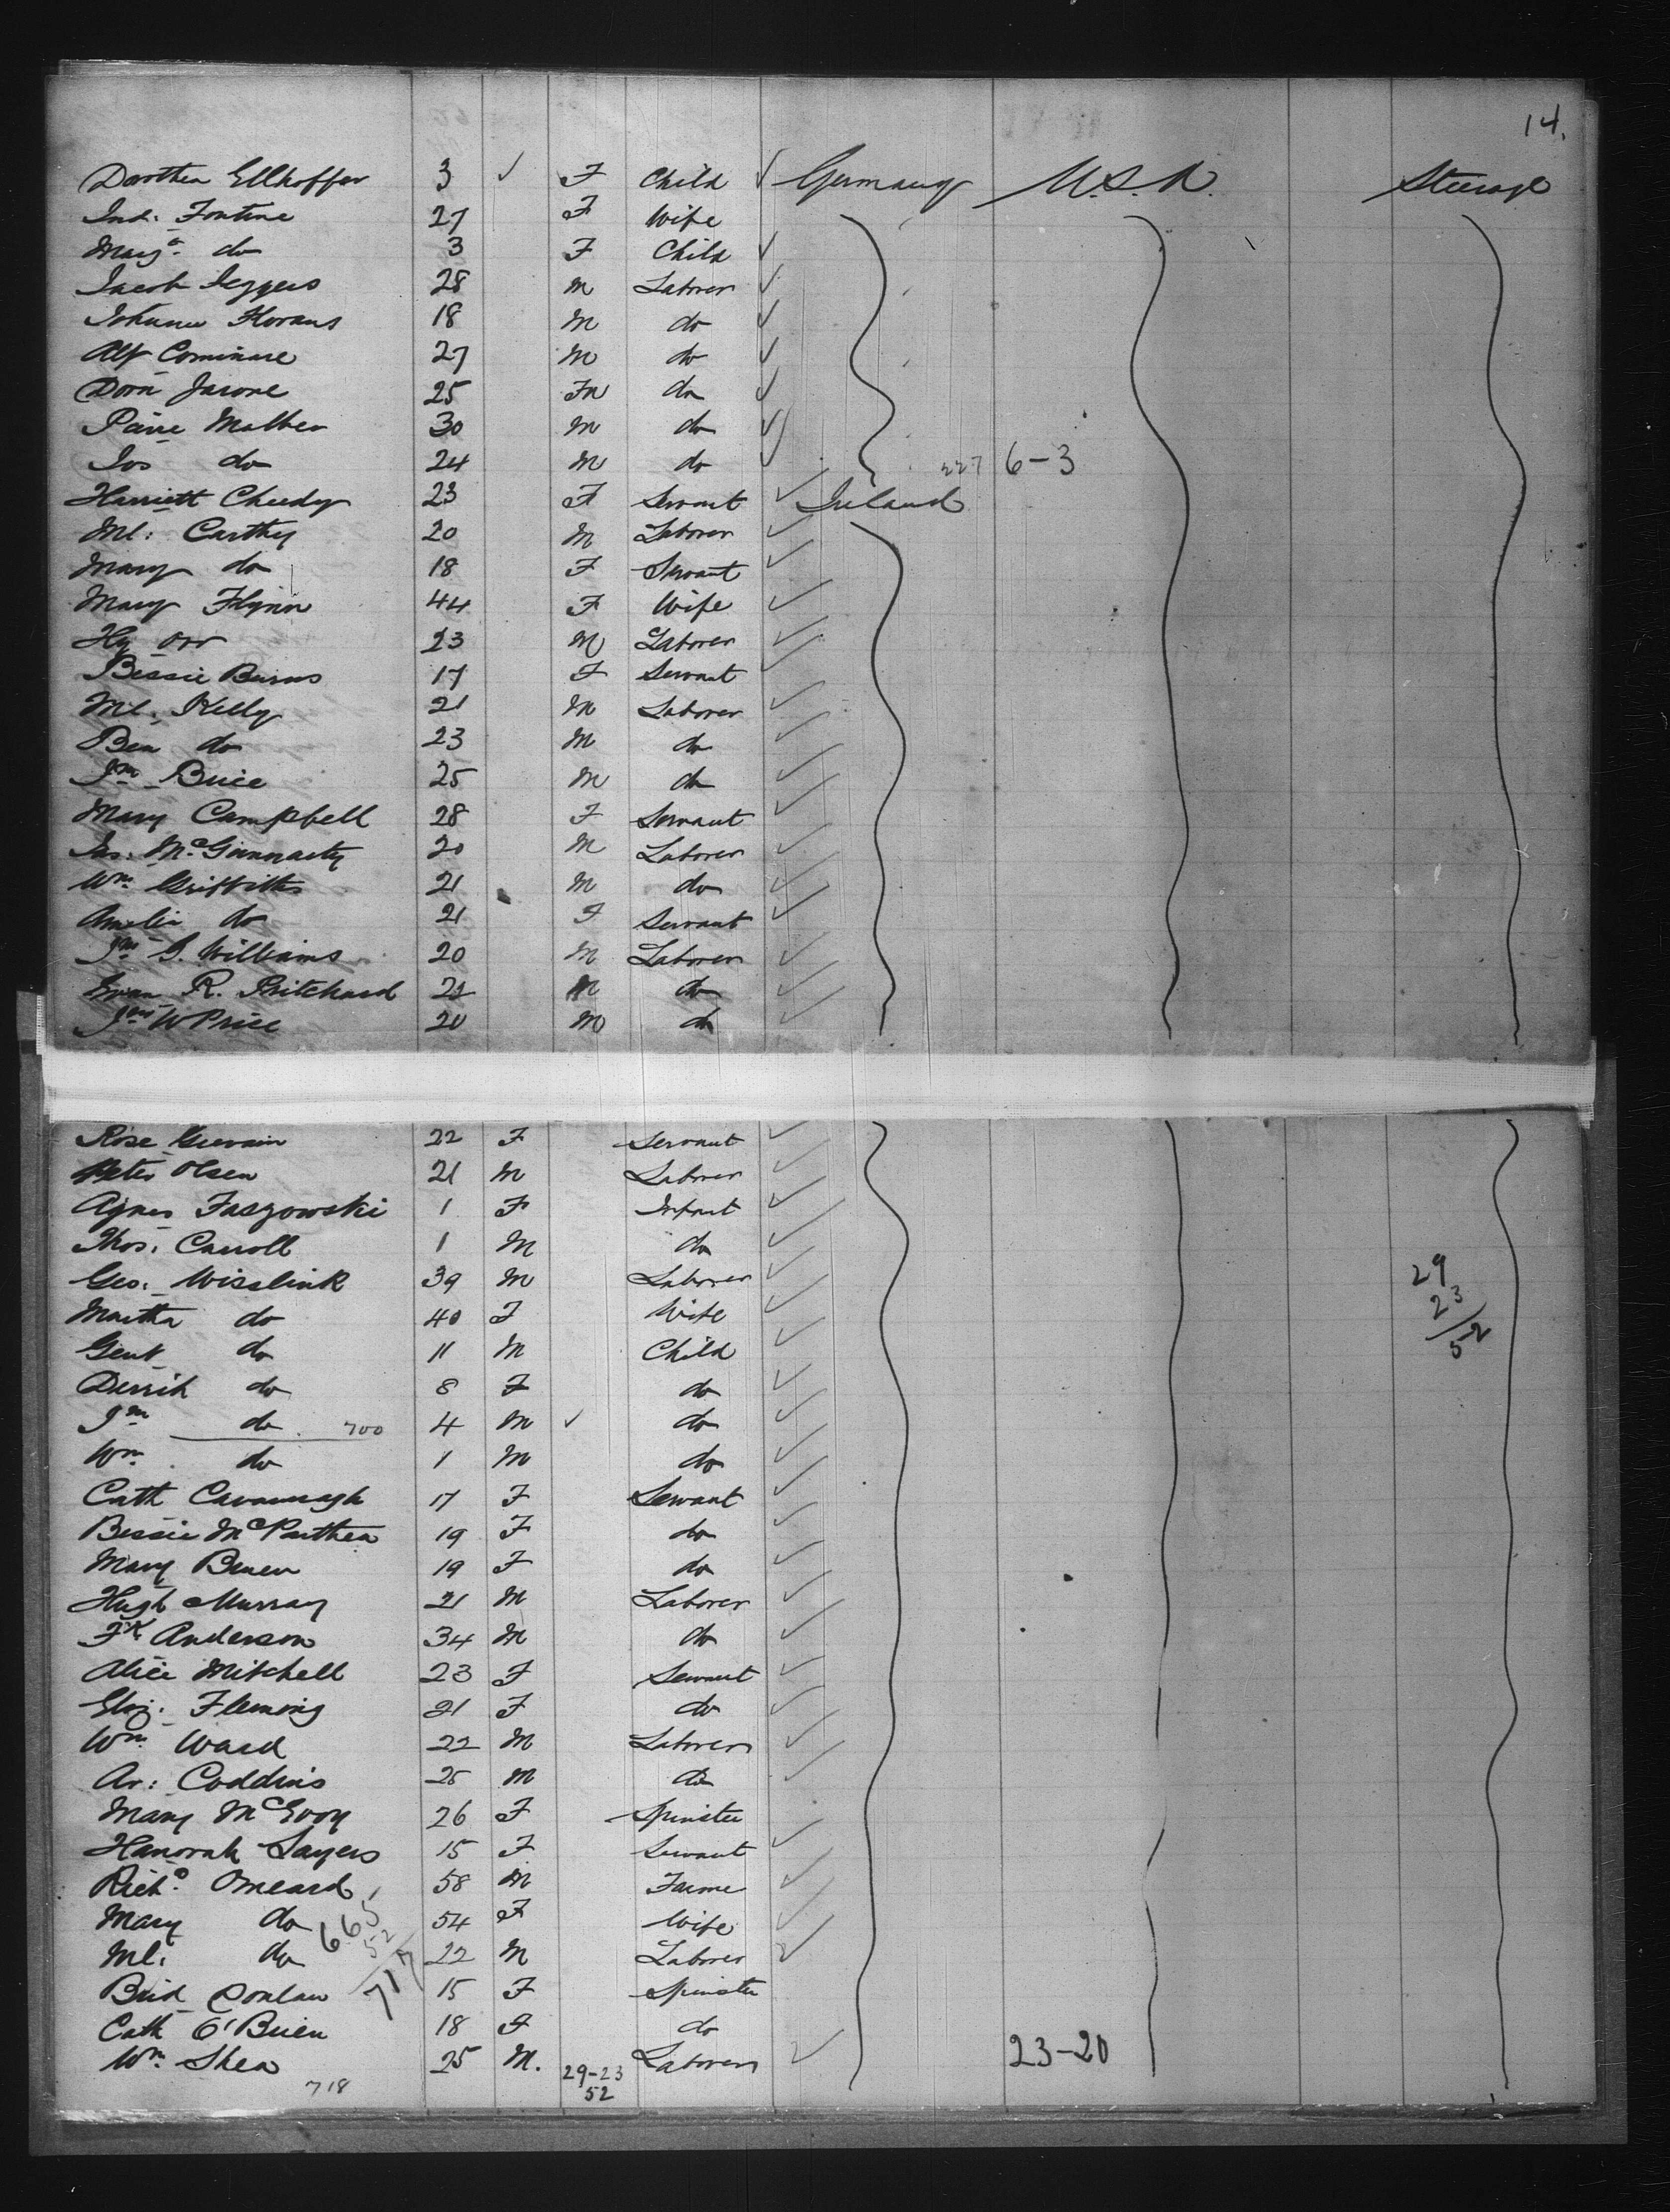 14.
Dorothea Ellhoffer 3 ✓ F Child ✓ Germany U.S.A. Steerage
Ind. Fontine 27 F Wife
Marg. do 3 F Child ✓
Jacob Jeggers 28 M Laborer ✓
Johann Florans 18 M do ✓
Alf Cominare 27 M do ✓
Dom Jarone 25 M do ✓
Paire Mather 30 M do ✓
Jos do 24 M do ✓ 227 6-3
Harriett Cheedy 23 F Servant ✓ Ireland
Ml: Carthy 20 M Laborer ✓
Mary do 18 F Servant ✓
Mary Flynn 44 F Wife ✓
Hy Orr 23 M Laborer ✓
Bessie Burns 17 F Servant ✓
Ml. Kelly 21 M Laborer ✓
Ben do 23 M do ✓
Jn Brice 25 M do ✓
Mary Campbell 28 F Servant ✓
Jas. McGinnarty 20 M Laborer ✓
Wm. Griffiths 21 M do ✓
Amelia do 21 F Servant ✓
Jn J. Williams 20 M Laborer ✓
Evan R. Pritchard 21 M do ✓
Jno W Price 20 M do ✓
Rose 22 F Servant ✓
Peter Olsen 21 M Laborer ✓
Agnes Faszowski 1 F Infant ✓
Thos. Carroll 1 M do ✓
Geo. Wisslink 39 M Laborer ✓ 29
Martha do 40 F Wife ✓ 23
Gent do 11 M Child ✓ 52
Derrik do 8 F do ✓
Jn do 700 4 M ✓ do ✓
Wm. do 1 M do ✓
Cath Cavanagh 17 F Servant ✓
Bessie McParthea 19 F do ✓
Mary Bener 19 F do ✓
Hugh Murray 21 M Laborer ✓
Fk Anderson 34 M do ✓
Alice Mitchell 23 F Servant ✓
Eliz. Fleming 21 F do ✓
Wm. Ward 22 M Laborer ✓
Ar: Coddins 25 M do ✓
Mary McEvoy 26 F Spinster ✓
Hanorah Sayers 15 F Servant ✓
Richd. Omeard 58 M Farme ✓
Mary do 665 54 F Wife ✓
Ml. do 52 22 M Laborer ✓
Brid Conlan 717 15 F Spinster
Cath O'Brien 18 F do
Wm. Shea 25 M. Laborer ✓ 23-20
718 29-23
52